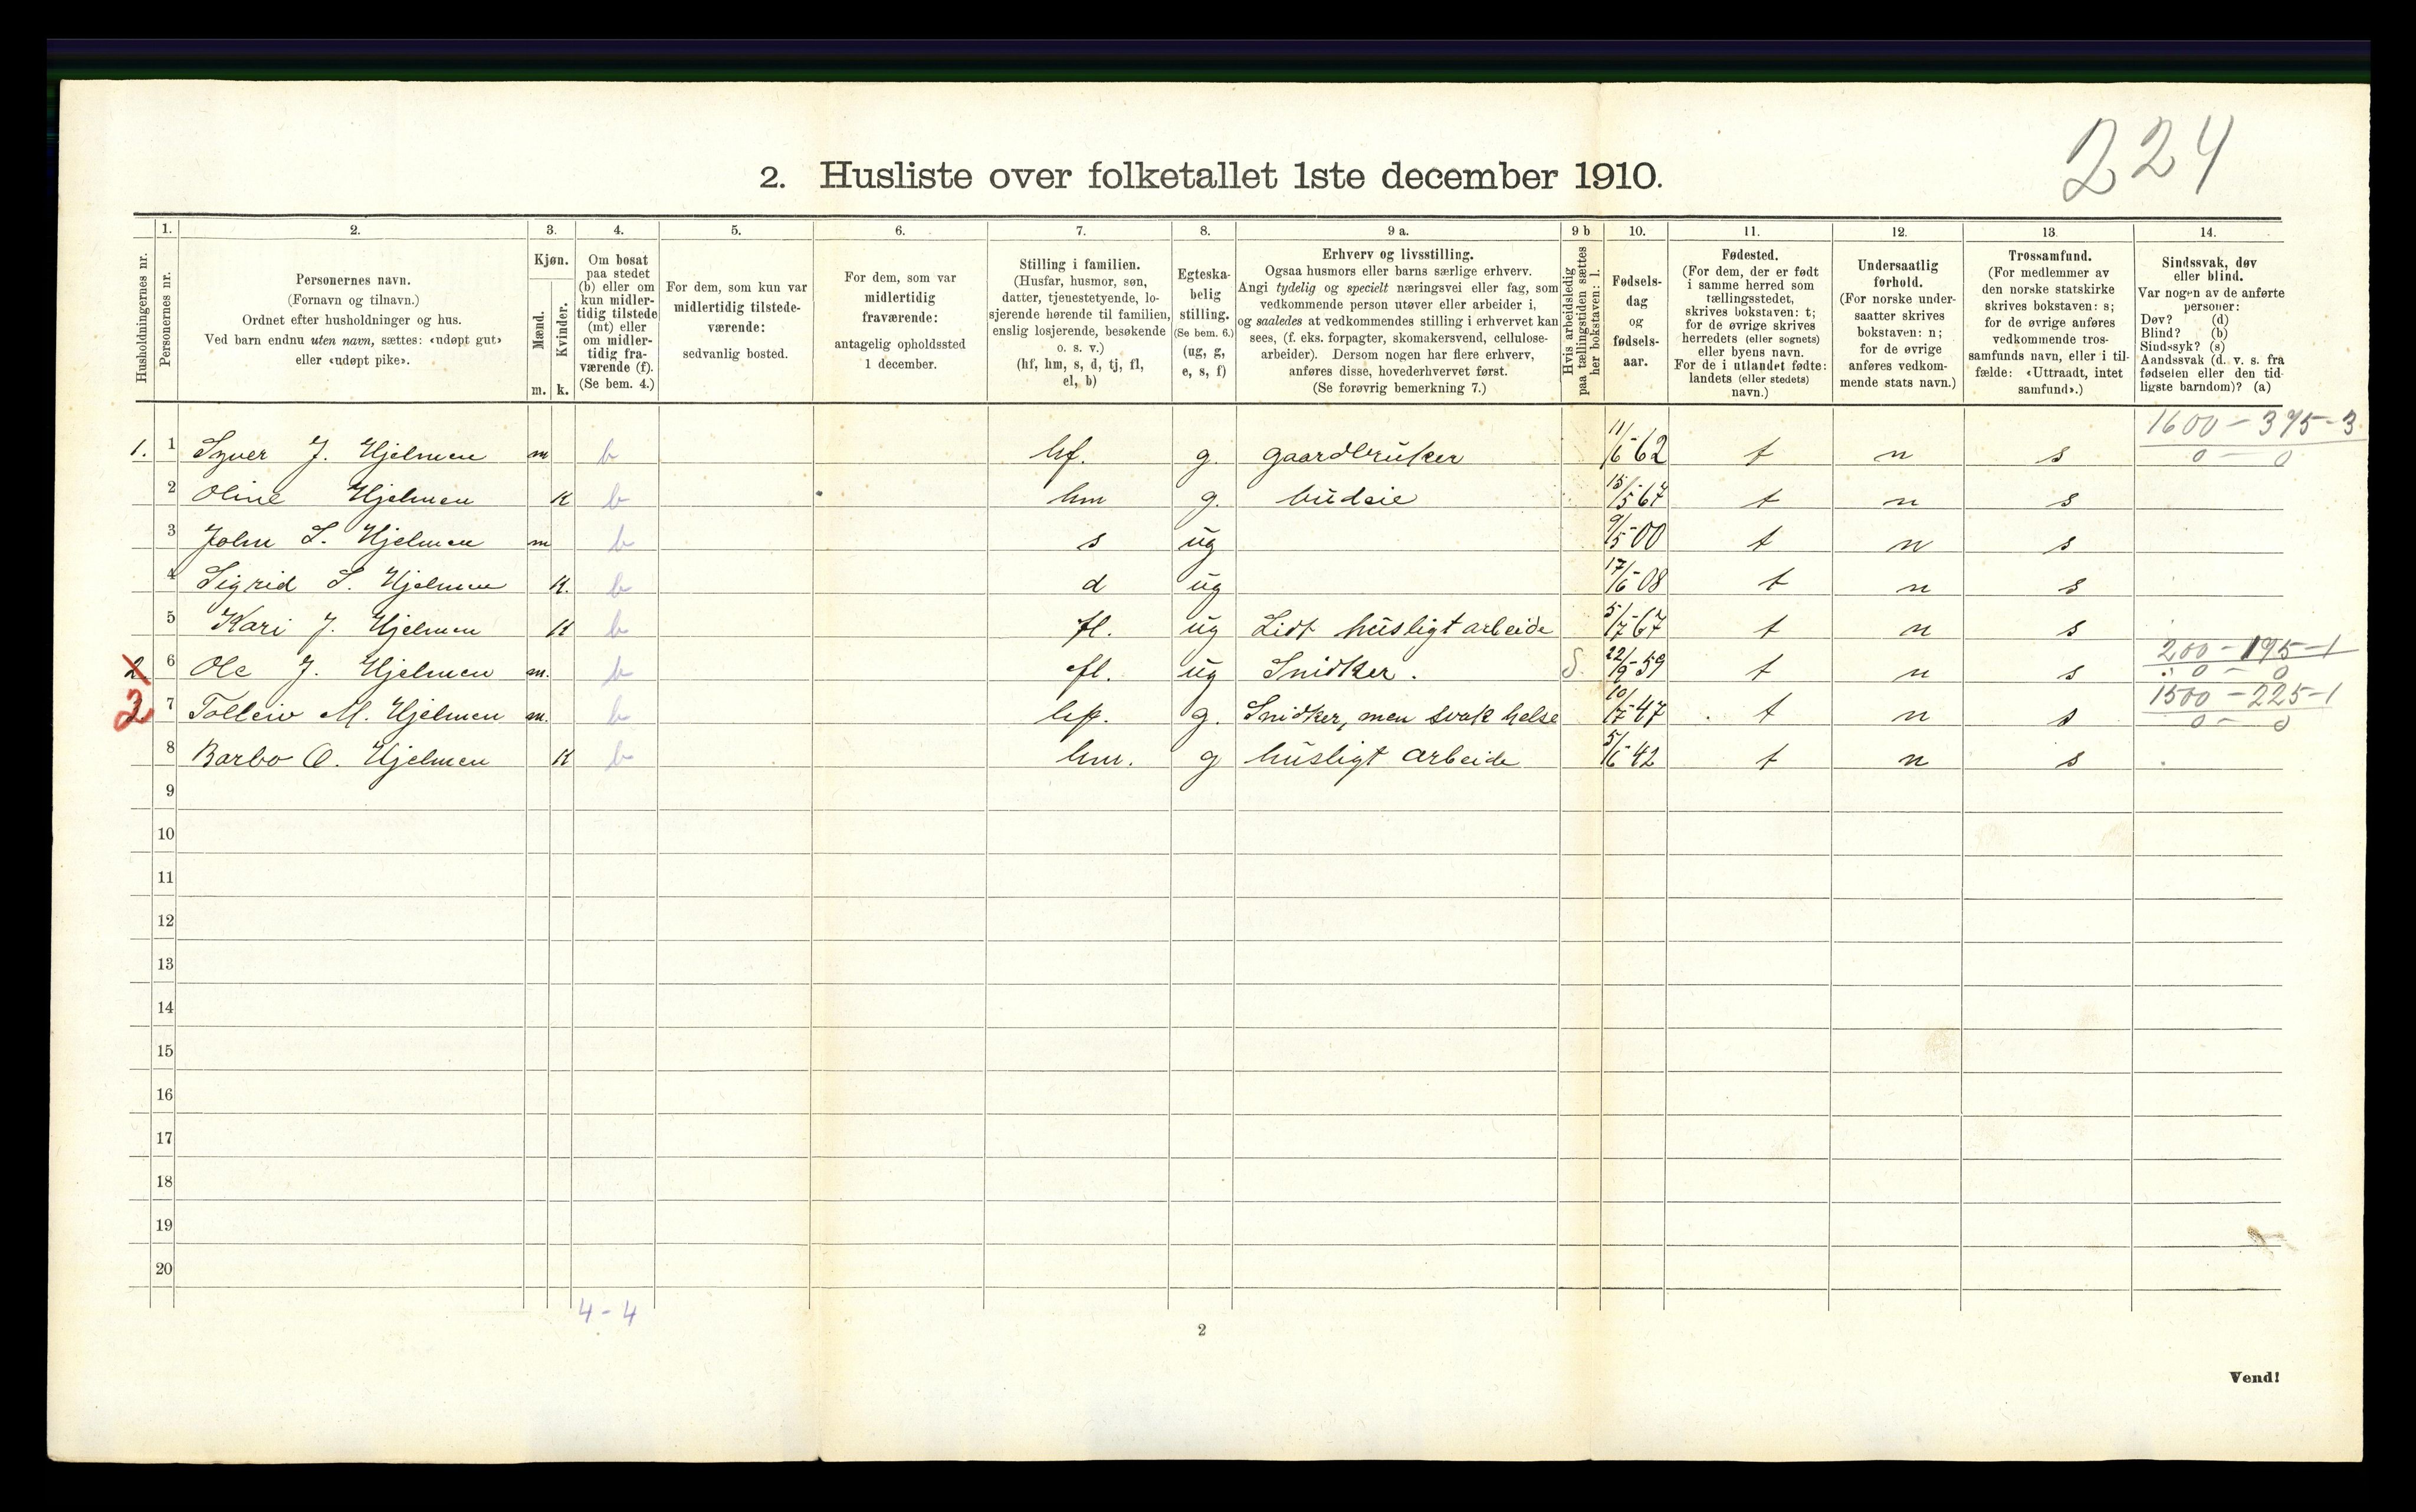 224
2. Husliste over folketallet 1ste december 1910.
Husholdningernes nr.
1. Personernes nr.
2. Personernes navn. (Fornavn og tilnavn.) Ordnet efter husholdninger og hus. Ved barn endnu uten navn, sættes: «udøpt gut» eller «udøpt pike».
3. Kjøn. Mænd. m. Kvinder. k.
4. Om bosat paa stedet (b) eller om kun midlertidig tilstede (mt) eller om midlertidig fraværende (f). (Se bem. 4.)
5. For dem, som kun var midlertidig tilstedeværende: sedvanlig bosted.
6. For dem, som var midlertidig fraværende: antagelig opholdssted 1 december.
7. Stilling i familien. (Husfar, husmor, søn, datter, tjenestetyende, losjerende hørende til familien, enslig losjerende, besøkende o. s. v.) (hf, hm, s, d, tj, fl, el, b)
8. Egteskabelig stilling. (Se bem. 6.) (ug, g, e, s, f)
9 a. Erhverv og livsstilling. Ogsaa husmors eller barns særlige erhverv. Angi tydelig og specielt næringsvei eller fag, som vedkommende person utøver eller arbeider i, og saaledes at vedkommendes stilling i erhvervet kan sees, (f. eks. forpagter, skomakersvend, cellulosearbeider). Dersom nogen har flere erhverv, anføres disse, hovederhvervet først. (Se forøvrig bemerkning 7.)
9 b Hvis arbeidsledig paa tællingstiden sættes her bokstaven: l.
10. Fødselsdag og fødselsaar.
11. Fødested. (For dem, der er født i samme herred som tællingsstedet, skrives bokstaven: t; for de øvrige skrives herredets (eller sognets) eller byens navn. For de i utlandet fødte: landets (eller stedets) navn.)
12. Undersaatlig forhold. (For norske undersaatter skrives bokstaven: n; for de øvrige anføres vedkommende stats navn.)
13. Trossamfund. (For medlemmer av den norske statskirke skrives bokstaven: s; for de øvrige anføres vedkommende trossamfunds navn, eller i tilfælde: «Uttraadt, intet samfund».)
14. Sindssvak, døv eller blind. Var nogen av de anførte personer: Døv? (d) Blind? (b) Sindssyk? (s) Aandssvak (d. v. s. fra fødselen eller den tidligste barndom)? (a)
1600 - 375 - 3
1. 1 Syver J. Hjelmen m b hf. g. gaardbruker 11/6-62 t n s 0 - 0
2 Oline Hjelmen K b hm g. budeie 15/5-67 t n s
3 John S. Hjelmen m b s ug 9/5-00 t n s
4 Sigrid S. Hjelmen K. b d ug 17/6-08 t n s
5 Kari J. Hjelmen K b fl. ug Lidt husligt arbeide 5/7-67 t n s
200 - 195 - 1
2 6 Ole J. Hjelmen m. b fl. ug Snidker. 22/9-59 t n s 0 - 0
1500 - 225 - 1
2 7 Tolleiv M. Hjelmen m. b hf. g. Snidker, men svak helse 10/7-47 t n s 0 - 0
8 Barbo O. Hjelmen K b hm. g husligt arbeide 5/6-42 t n s
9
10
11
12
13
14
15
16
17
18
19
20
4-4
2
Vend!